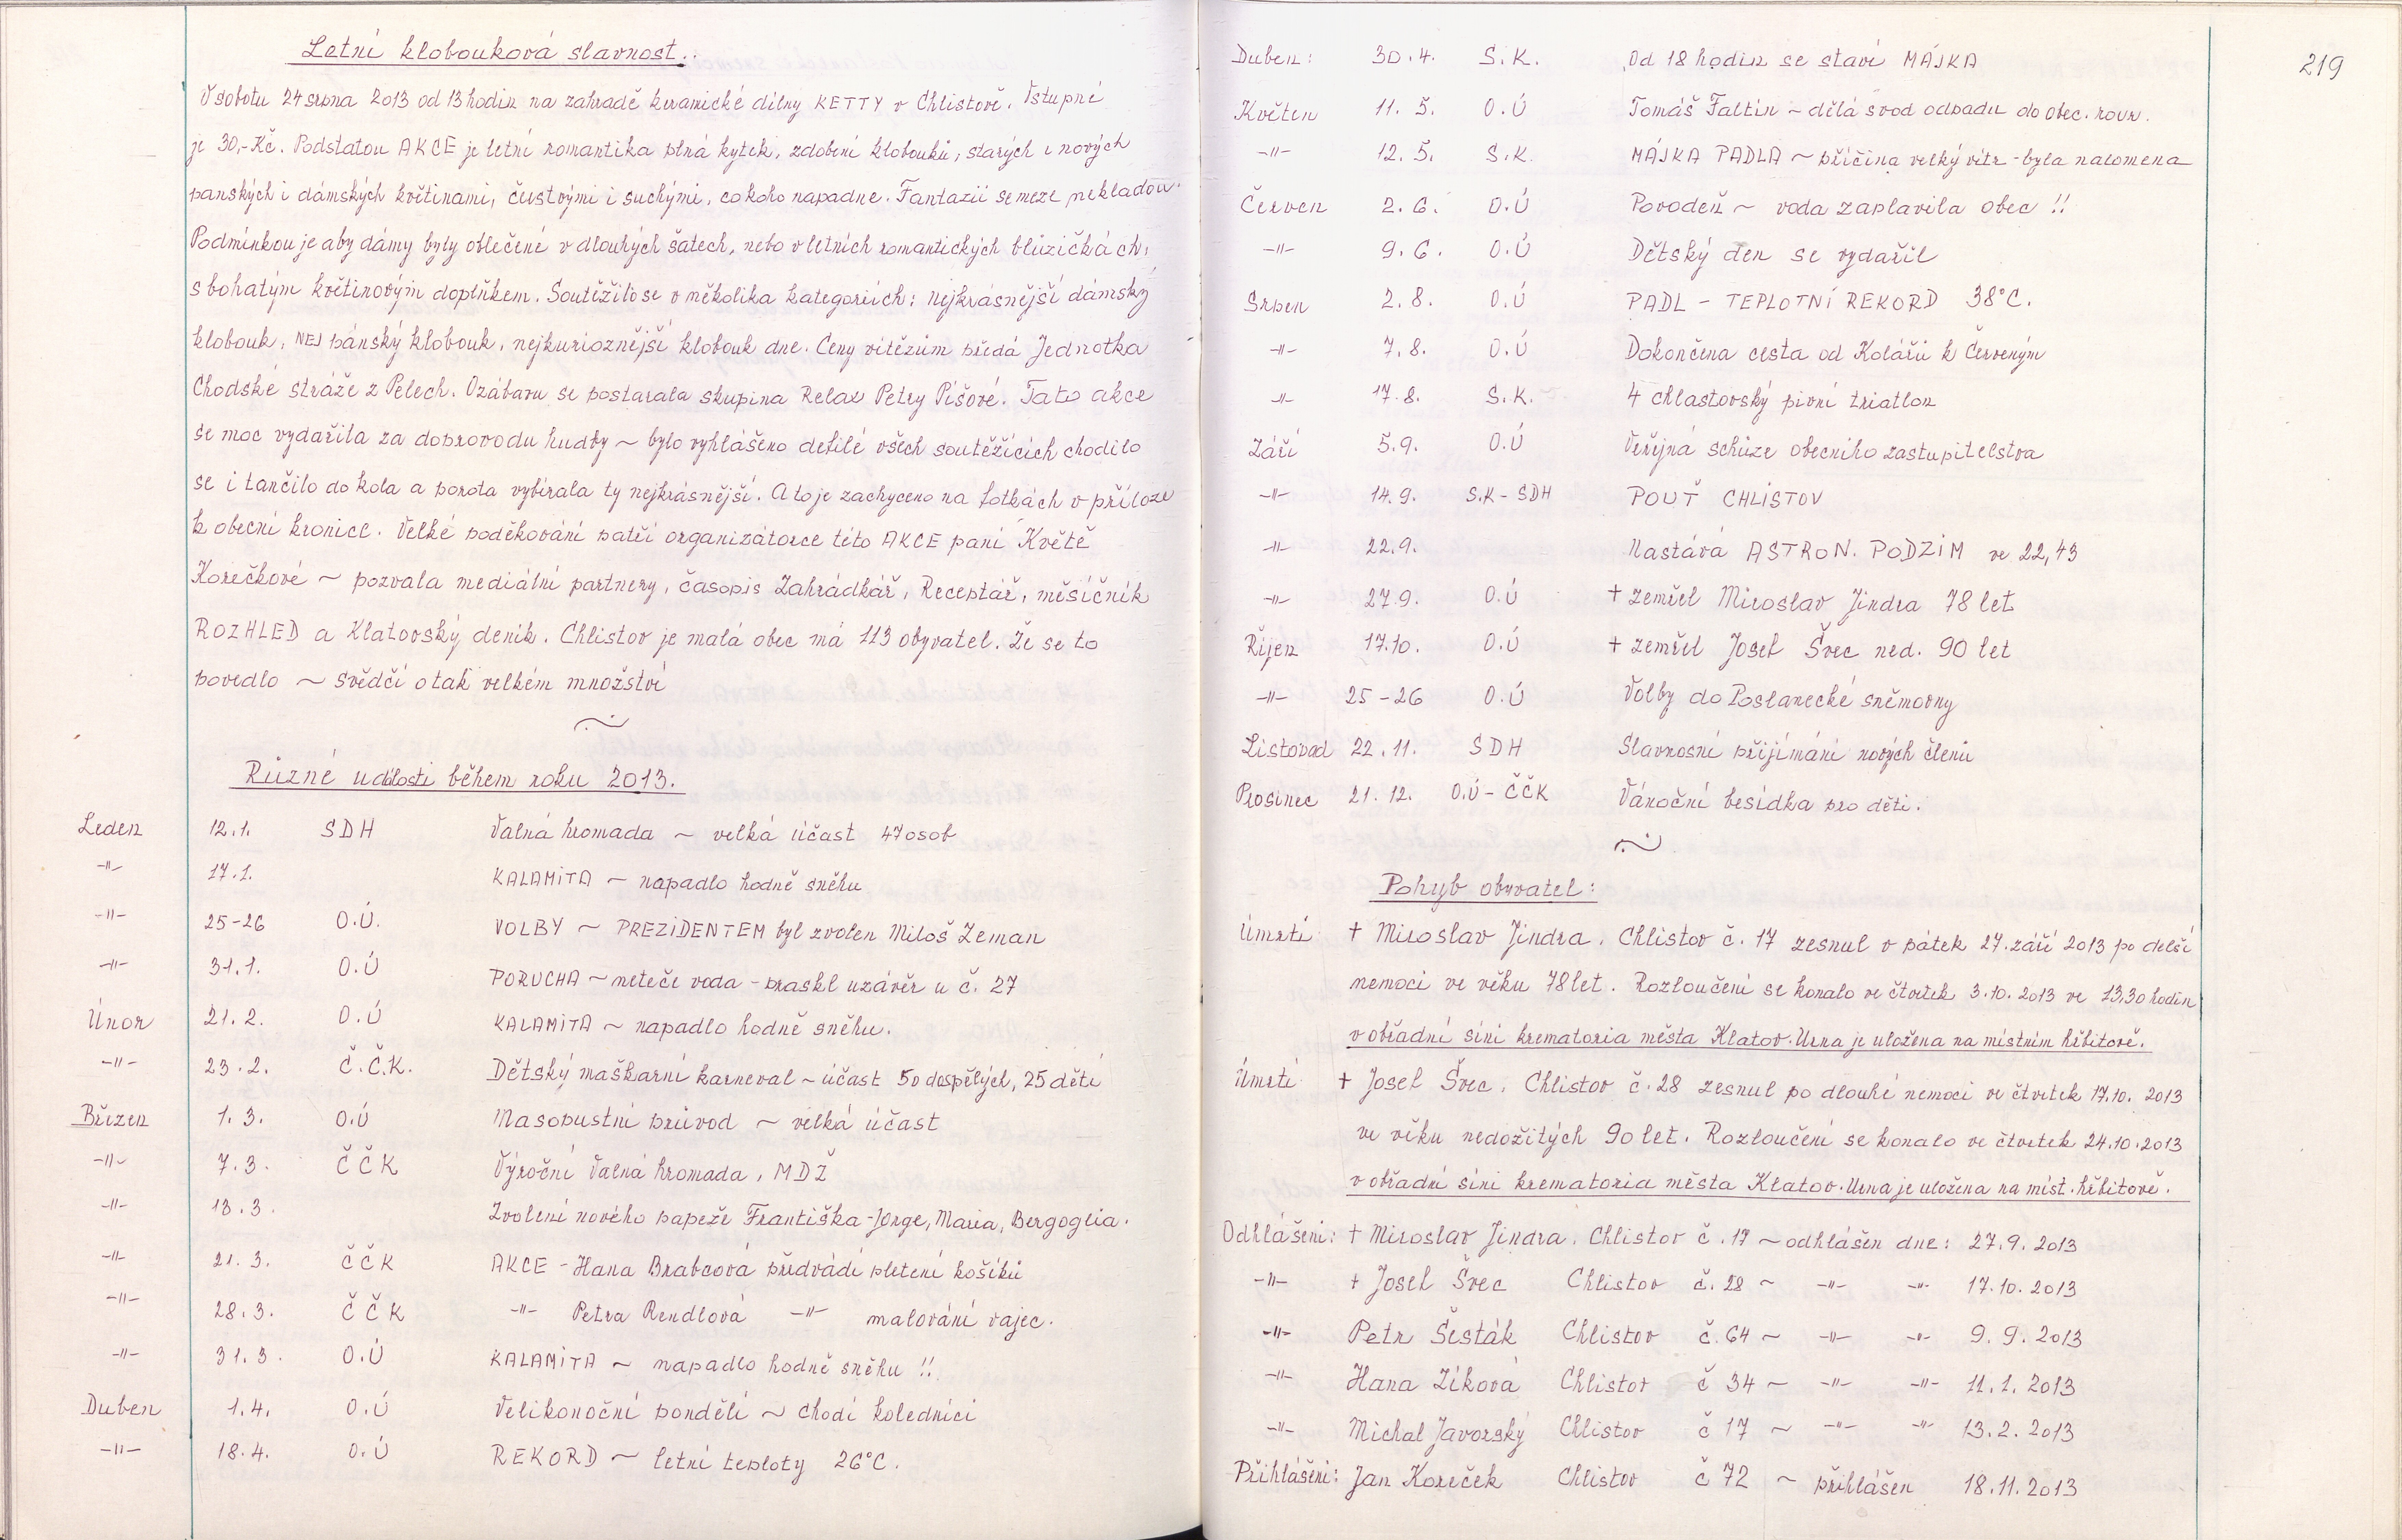 Letní klobouková slavnost..
V sobotu 24 srpna 2013 od 13 hodin na zahradě keramické dílny KETTY v Chlistově. Vstupné
je 30,- Kč. Podstatou AKCE je letní romantika plná kytek, zdobení klobouků, starých i nových
panských i dámských květinami, čerstvými i suchými, co koho napadne. Fantazii se meze nekladou.
Podmínkou je aby dámy byly oblečené v dlouhých šatech, nebo v letních romantických blůzičkách,
s bohatým květinovým doplňkem. Soutěžilo se v několika kategoriích: nejkrásnější dámský
klobouk, NEJ pánský klobouk, nejkurioznější klobouk dne. Ceny vítězům předá Jednotka
Chodské stráže z Pelech. O zábavu se postarala skupina Relax Petry Píšové. Tato akce
se moc vydařila za doprovodu hudby ~ bylo vyhlášeno defilé všech soutěžících chodilo
se i tančilo do kola a porota vybírala ty nejkrásnější. A to je zachyceno na fotkách v příloze
k obecní kronice. Velké poděkování patří organizátorce této AKCE paní Květě
Korečkové ~ pozvala mediální partnery, časopis Zahrádkář, Receptář, měsíčník
ROZHLED a Klatovský deník. Chlistov je malá obec má 113 obyvatel. Že se to
povedlo ~ svědčí o tak velkém množství
~
Různé události během roku 2013.
Leden 12.1. SDH Valná hromada ~ velká účast 47 osob
-"- 17.1. KALAMITA ~ napadlo hodně sněhu
-"- 25-26 O.Ú. VOLBY ~ PREZIDENTEM byl zvolen Miloš Zeman
-"- 31.1. O.Ú PORUCHA ~ neteče voda - praskl uzávěr u č. 27
Únor 21.2. O.Ú KALAMITA ~ napadlo hodně sněhu.
-"- 23.2. Č.Č.K. Dětský maškarní karneval ~ účast 50 dospělých, 25 dětí
Březen 1.3. O.Ú Masopustní průvod ~ velká účast
-"- 7.3. ČČK Výroční Valná hromada, MDŽ
-"- 13.3. Zvolení nového papeže Františka - Jorge, Maria, Bergoglia.
-"- 21.3. ČČK AKCE - Hana Brabcová předvádí pletení košíků
-"- 28.3. ČČK -"- Petra Rendlová -"- malování vajec.
-"- 31.3. O.Ú KALAMITA ~ napadlo hodně sněhu !!
Duben 1.4. O.Ú Velikonoční pondělí ~ chodí koledníci
-"- 18.4. O.Ú REKORD ~ letní teploty 26°C.
219
Duben: 30.4. S.K. Od 18 hodin se staví MÁJKA
Květen 11.5. O.Ú Tomáš Faltin ~ dělá svod odpadu do obec. rour.
-"- 12.5. S.K. MÁJKA PADLA ~ příčina velký vítr - byla nalomena
Červen 2.6. O.Ú Povodeň ~ voda zaplavila obec !!
-"- 9.6. O.Ú Dětský den se vydařil
Srpen 2.8. O.Ú PADL - TEPLOTNÍ REKORD 38°C.
-"- 7.8. O.Ú Dokončena cesta od Kolářů k Červeným
-"- 17.8. S.K. 4 chlastovský pivní triatlon
Září 5.9. O.Ú Veřejná schůze obecního zastupitelstva
-"- 14.9. S.K - SDH POUŤ CHLISTOV
-"- 22.9. Nastává ASTRON. PODZIM ve 22,43
-"- 27.9. O.Ú + zemřel Miroslav Jindra 78 let
Říjen 17.10. O.Ú + zemřel Josef Švec ned. 90 let
-"- 25-26 O.Ú Volby do Poslanecké sněmovny
Listopad 22.11. SDH Slavnosní přijímání nových členů
Prosinec 21.12. O.Ú - ČČK Vánoční besídka pro děti.
~
Pohyb obyvatel:
Úmrtí + Miroslav Jindra, Chlistov č. 17 zesnul v pátek 27. září 2013 po delší
nemoci ve věku 78 let. Rozloučení se konalo ve čtvrtek 3.10.2013 ve 13,30 hodin
v obřadní síni krematoria města Klatov. Urna je uložena na místním hřbitově.
Úmrtí + Josef Švec, Chlistov č. 28 zesnul po dlouhé nemoci ve čtvrtek 17.10. 2013
ve věku nedožitých 90 let. Rozloučení se konalo ve čtvrtek 24.10.2013
v obřadní síni krematoria města Klatov. Urna je uložena na míst. hřbitově.
Odhlášeni: + Miroslav Jindra, Chlistov č. 17 ~ odhlášen dne: 27.9.2013
-"- + Josef Švec Chlistov č. 28 ~ -"- -"- 17.10.2013
-"- Petr Šesták Chlistov č. 64 ~ -"- -"- 9.9.2013
-"- Hana Zíková Chlistov č 34 ~ -"- -"- 11.1.2013
-"- Michal Javorský Chlistov č 17 ~ -"- -"- 13.2.2013
Přihlášeni: Jan Koreček Chlistov č 72 ~ přihlášen 18.11.2013